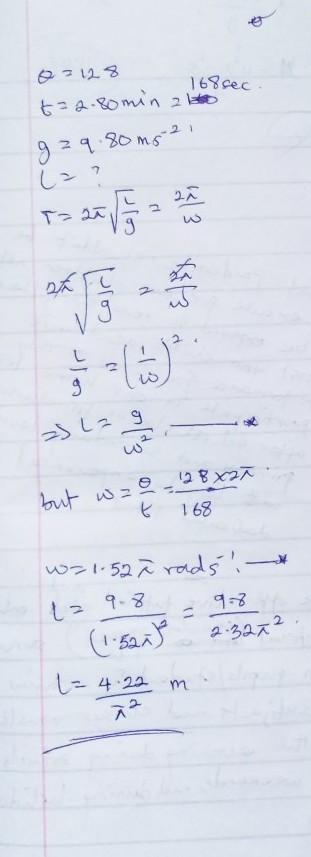 θ
θ = 128
t = 2.80min = 168sec.
g = 9.80ms⁻²,
L = ?
T = 2π√(L/g) = 2π/w
2π√(L/g) = 2π/w
L/g = (1/w)².
=> L = g/w². ——*
but w = θ/t = 128×2π/168.
w = 1.52π rads⁻¹. —*
L = 9.8/(1.52π)² = 9.8/2.32π².
L = 4.22/π² m.